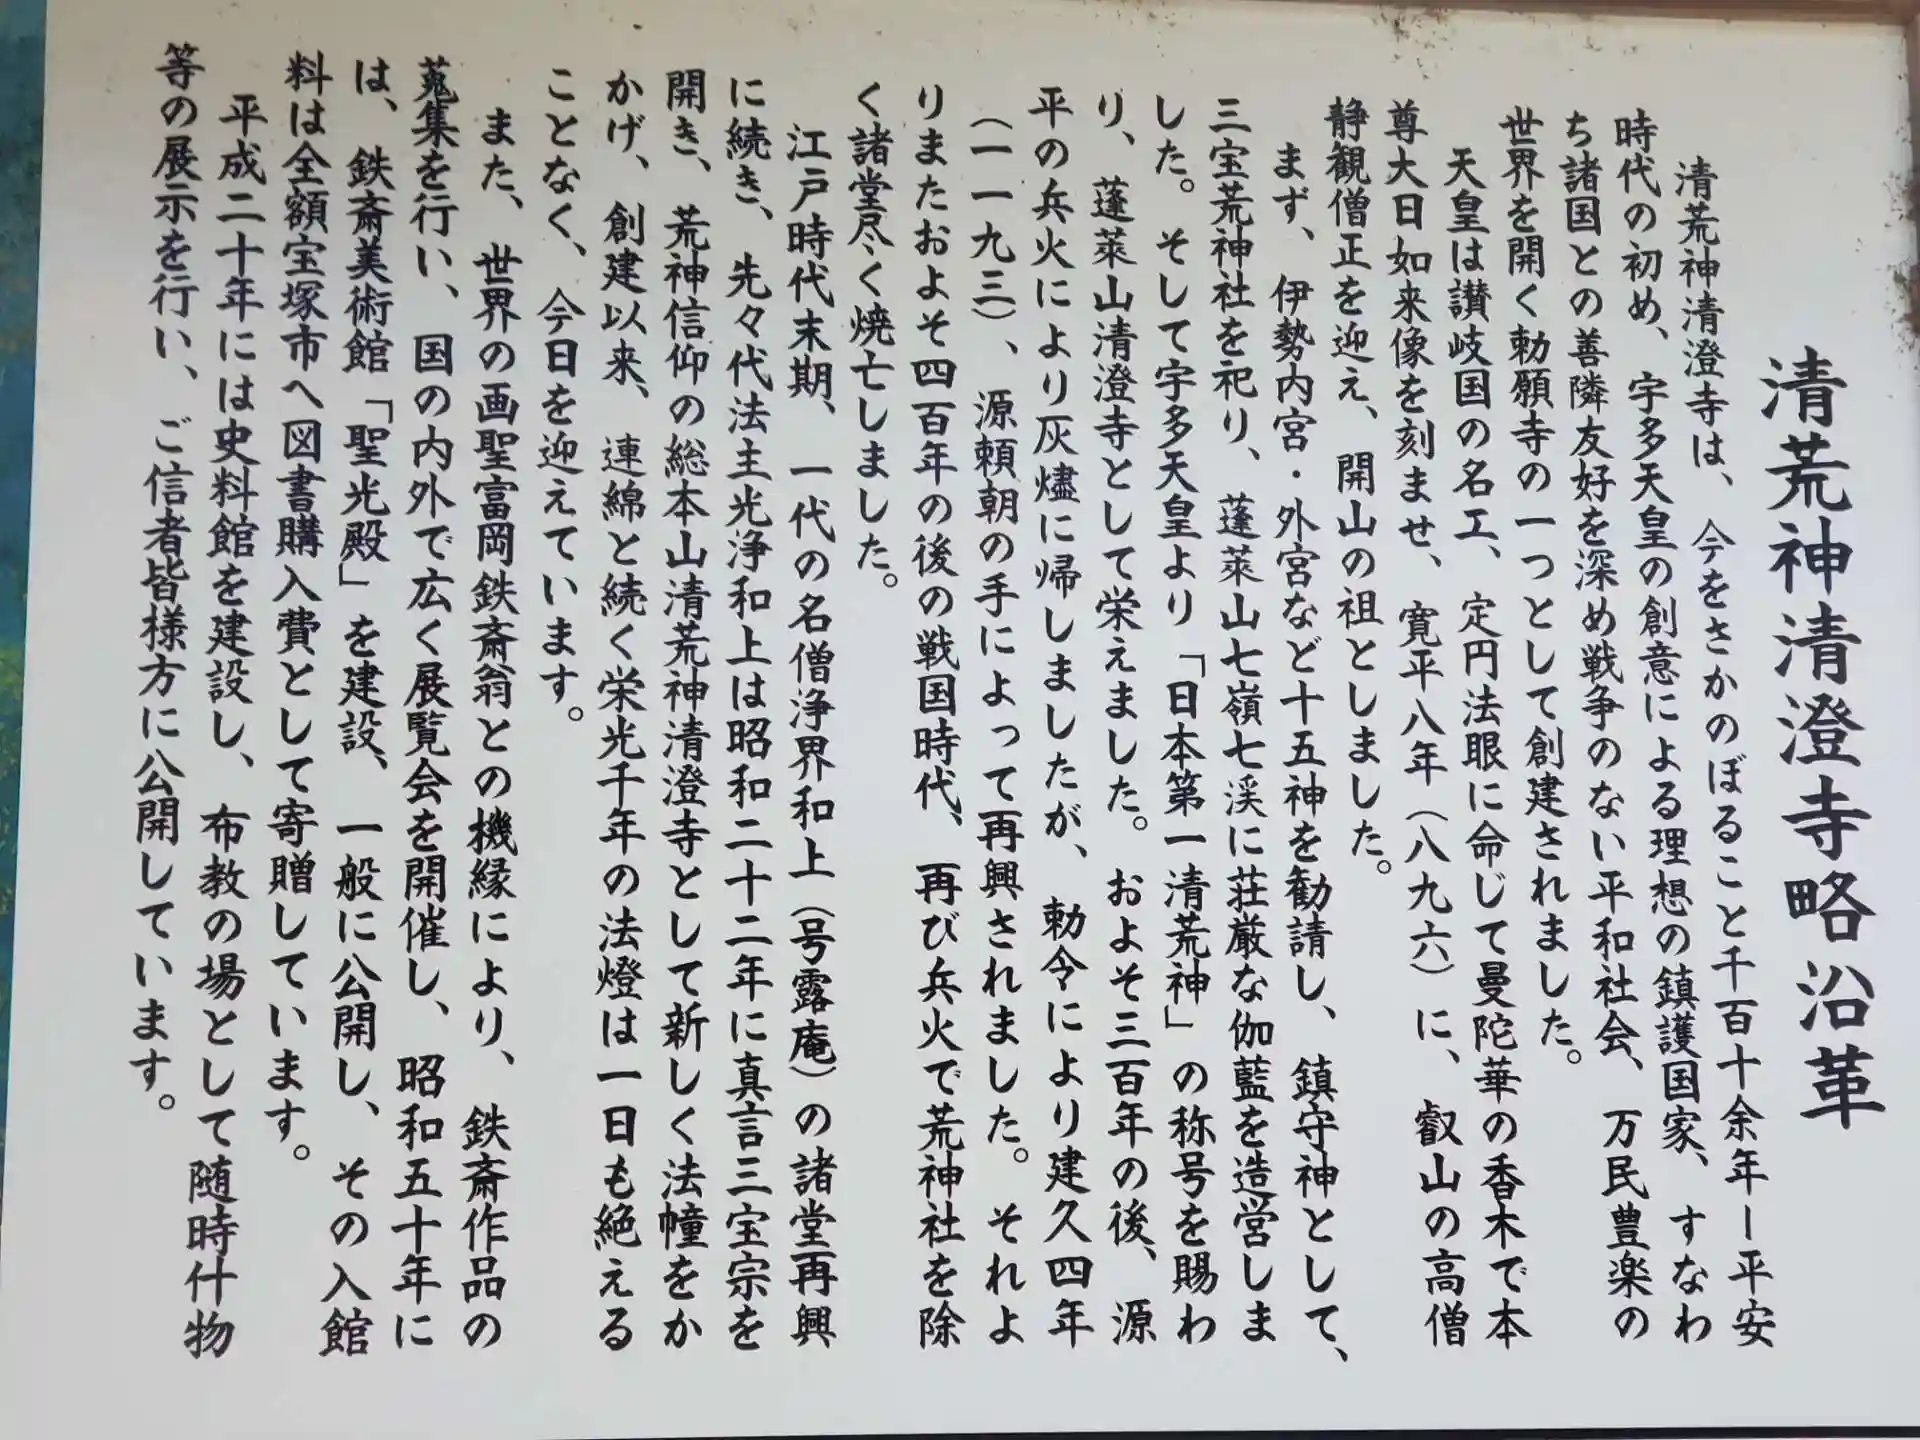 清荒神清澄寺略沿革
清荒神清澄寺は、今をさかのぼること千百十余年ー平安
時代の初め、宇多天皇の創意による理想の鎮護国家、すなわ
ち諸国との善隣友好を深め戦争のない平和社会、万民豊楽の
世界を開く勅願寺の一つとして創建されました。
天皇は讃岐国の名工、定円法眼に命じて曼陀華の香木で本
尊大日如来像を刻ませ、寛平八年（八九六）に、叡山の高僧
静観僧正を迎え、開山の祖としました。
まず、伊勢内宮・外宮など十五神を勧請し、鎮守神として、
三宝荒神社を祀り、蓬莱山七嶺七渓に荘厳な伽藍を造営しま
した。そして宇多天皇より「日本第一清荒神」の称号を賜わ
り、蓬莱山清澄寺として栄えました。およそ三百年の後、源
平の兵火により灰燼に帰しましたが、勅令により建久四年
（一一九三）、源頼朝の手によって再興されました。それよ
りまたおよそ四百年の後の戦国時代、再び兵火で荒神社を除
く諸堂尽く焼亡しました。
江戸時代末期、一代の名僧浄界和上（号露庵）の諸堂再興
に続き、先々代法主光浄和上は昭和二十二年に真言三宝宗を
開き、荒神信仰の総本山清荒神清澄寺として新しく法幢をか
かげ、創建以来、連綿と続く栄光千年の法燈は一日も絶える
ことなく、今日を迎えています。
また、世界の画聖富岡鉄斎翁との機縁により、鉄斎作品の
蒐集を行い、国の内外で広く展覧会を開催し、昭和五十年に
は、鉄斎美術館「聖光殿」を建設、一般に公開し、その入館
料は全額宝塚市へ図書購入費として寄贈しています。
平成二十年には史料館を建設し、布教の場として随時什物
等の展示を行い、ご信者皆様方に公開しています。